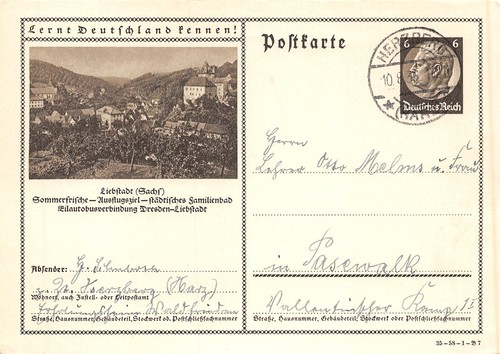 Lernt Deutschland kennen!
Postkarte
HERZBERG
10.8.
(HARZ)
6 6
Deutsches Reich
Herrn
Lehrer Otto Melms u. Frau
Liebstadt (Sachs)
Sommerfrische – Ausflugsziel – städtisches Familienbad
Eilautobusverbindung Dresden–Liebstadt
in Pasewalk
Absender:
z. Zt. Herzberg (Harz)
Wohnort, auch Zustell- oder Leitpostamt
Erholungsheim Waldfrieden
Straße, Hausnummer, Gebäudeteil, Stockwerk od. Postschließfachnummer
Kamp
Straße, Hausnummer, Gebäudeteil, Stockwerk oder Postschließfachnummer
35–58–1–B7